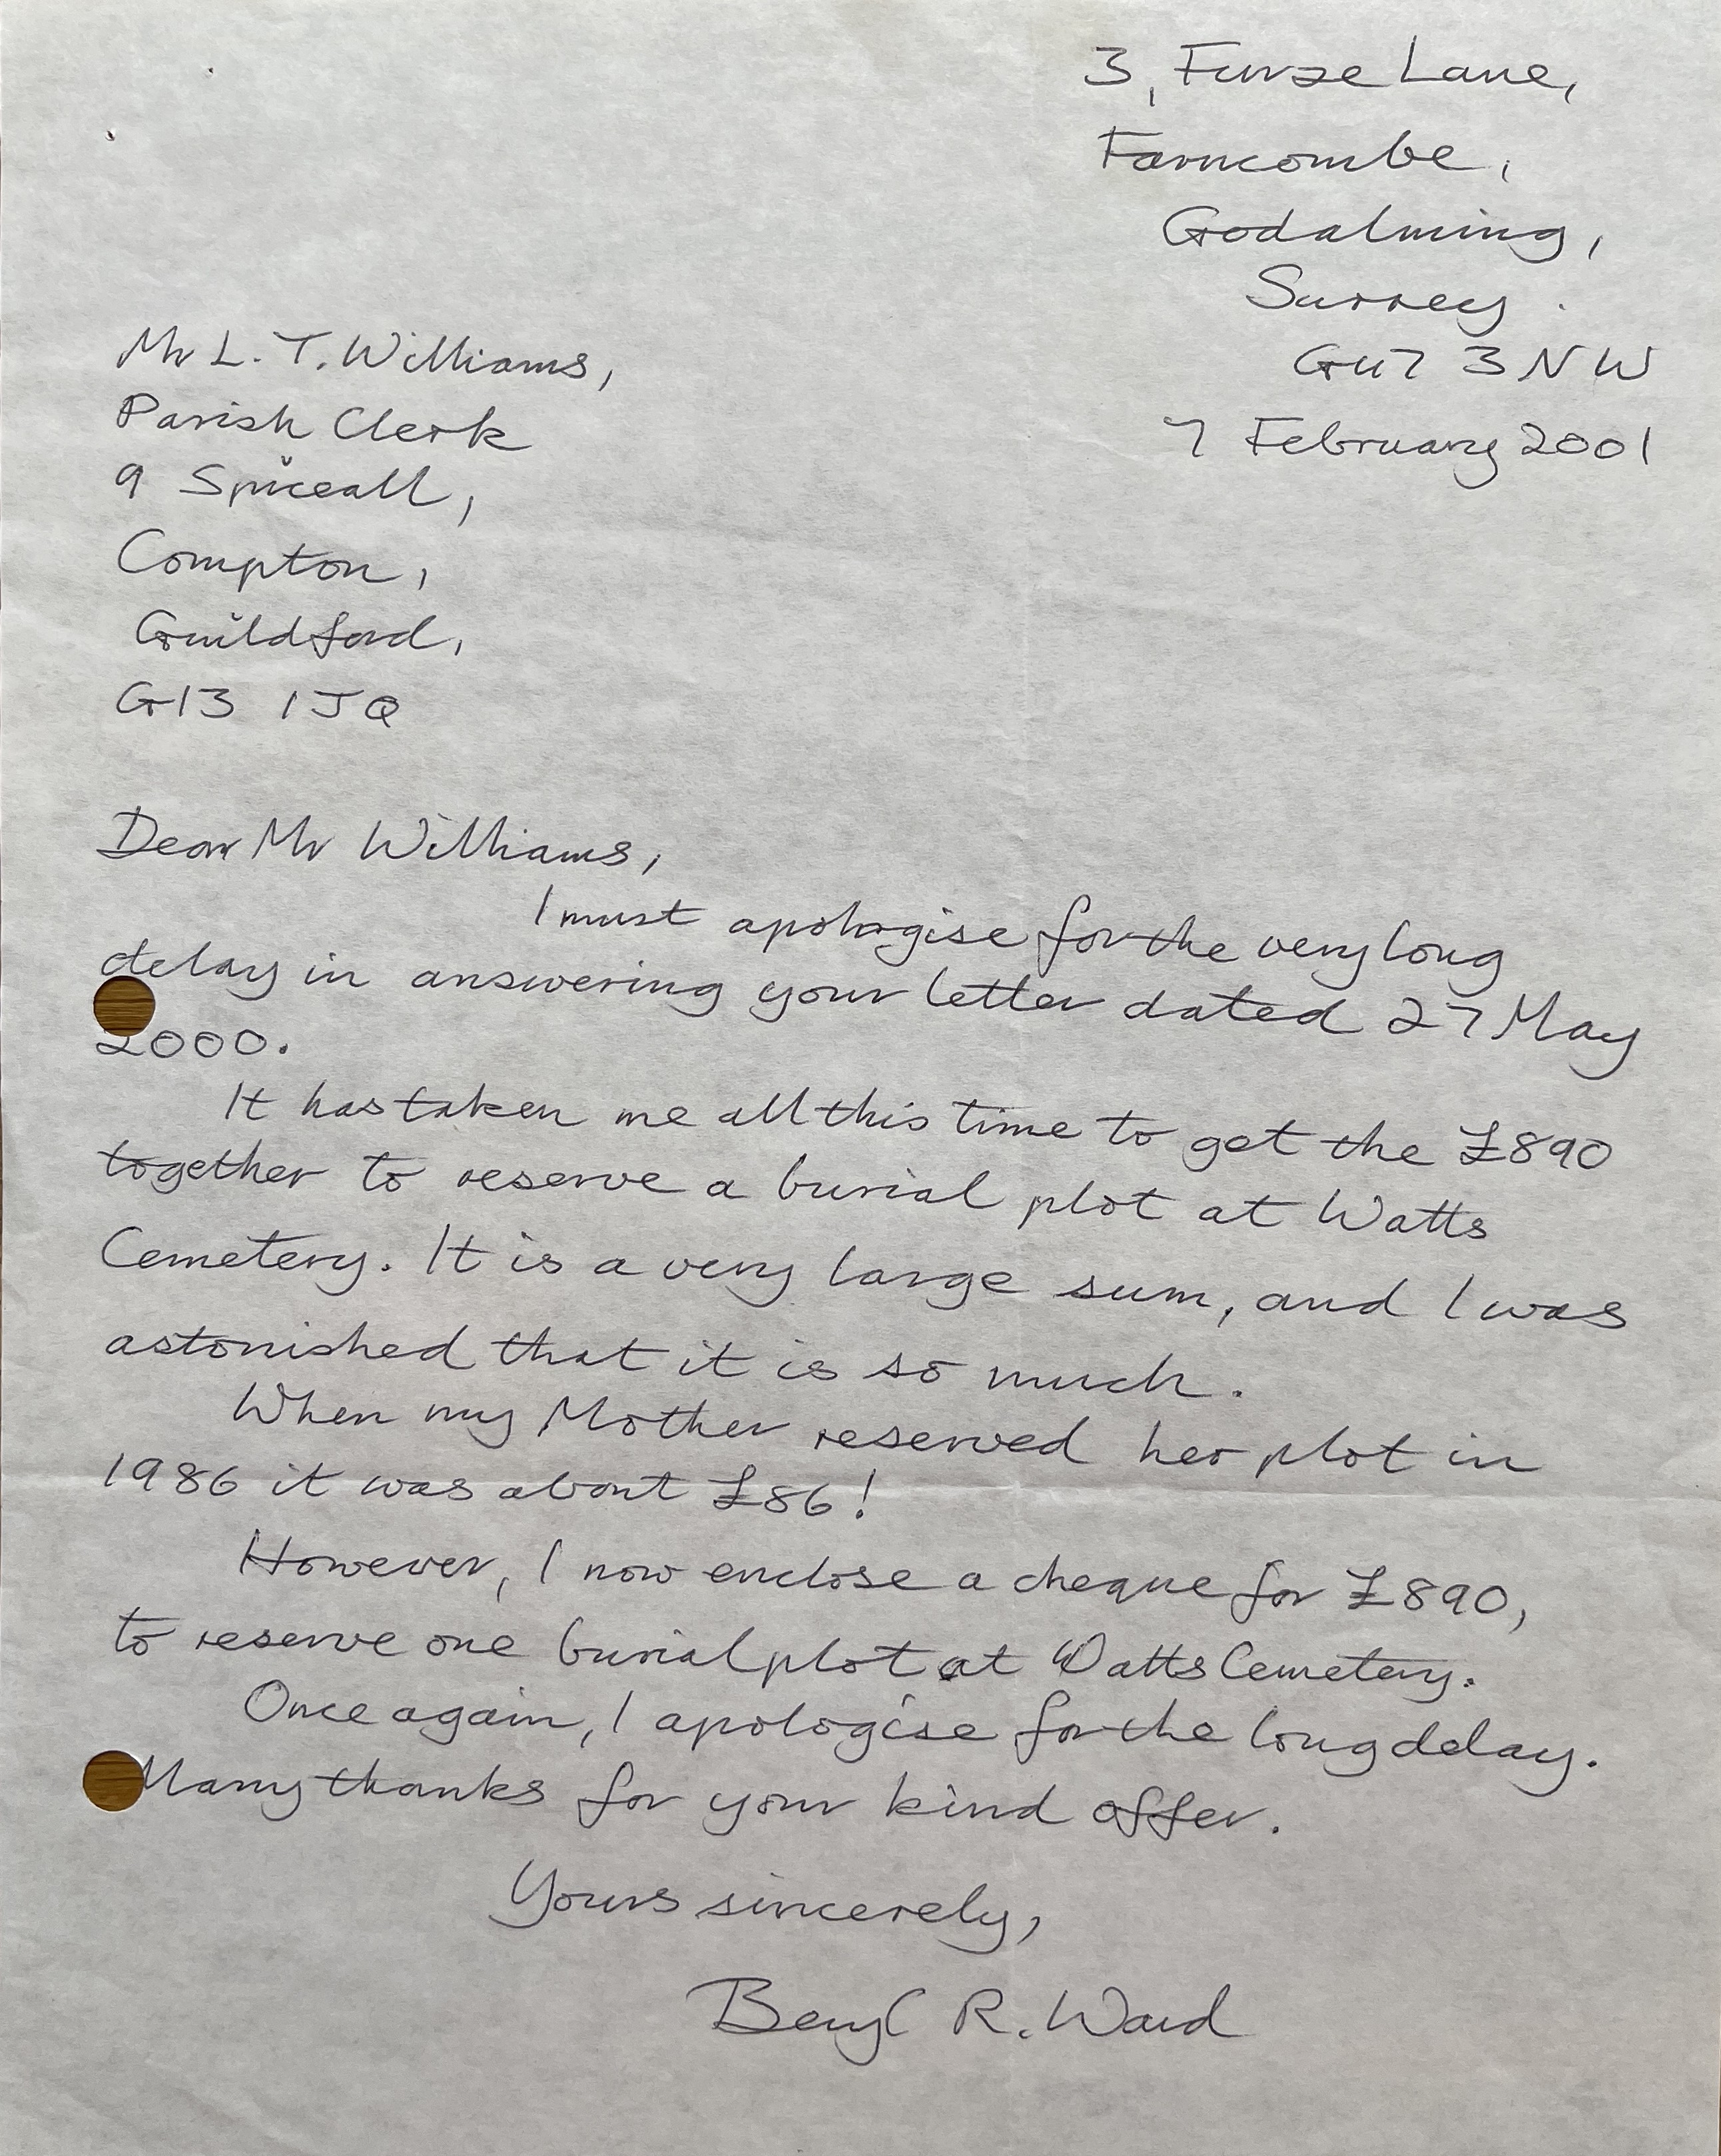 3, Furze Lane,
Farncombe,
Godalming,
Surrey.
GU7 3NW
7 February 2001
Mr L. T. Williams,
Parish Clerk
9 Spiceall,
Compton,
Guildford,
G13 1JQ
Dear Mr Williams,
I must apologise for the very long
delay in answering your letter dated 27 May
2000.
It has taken me all this time to get the £890
together to reserve a burial plot at Watts
Cemetery. It is a very large sum, and I was
astonished that it is so much.
When my Mother reserved her plot in
1986 it was about £86!
However, I now enclose a cheque for £890,
to reserve one burial plot at Watts Cemetery.
Once again, I apologise for the long delay.
Many thanks for your kind offer.
Yours sincerely,
Beryl R. Ward